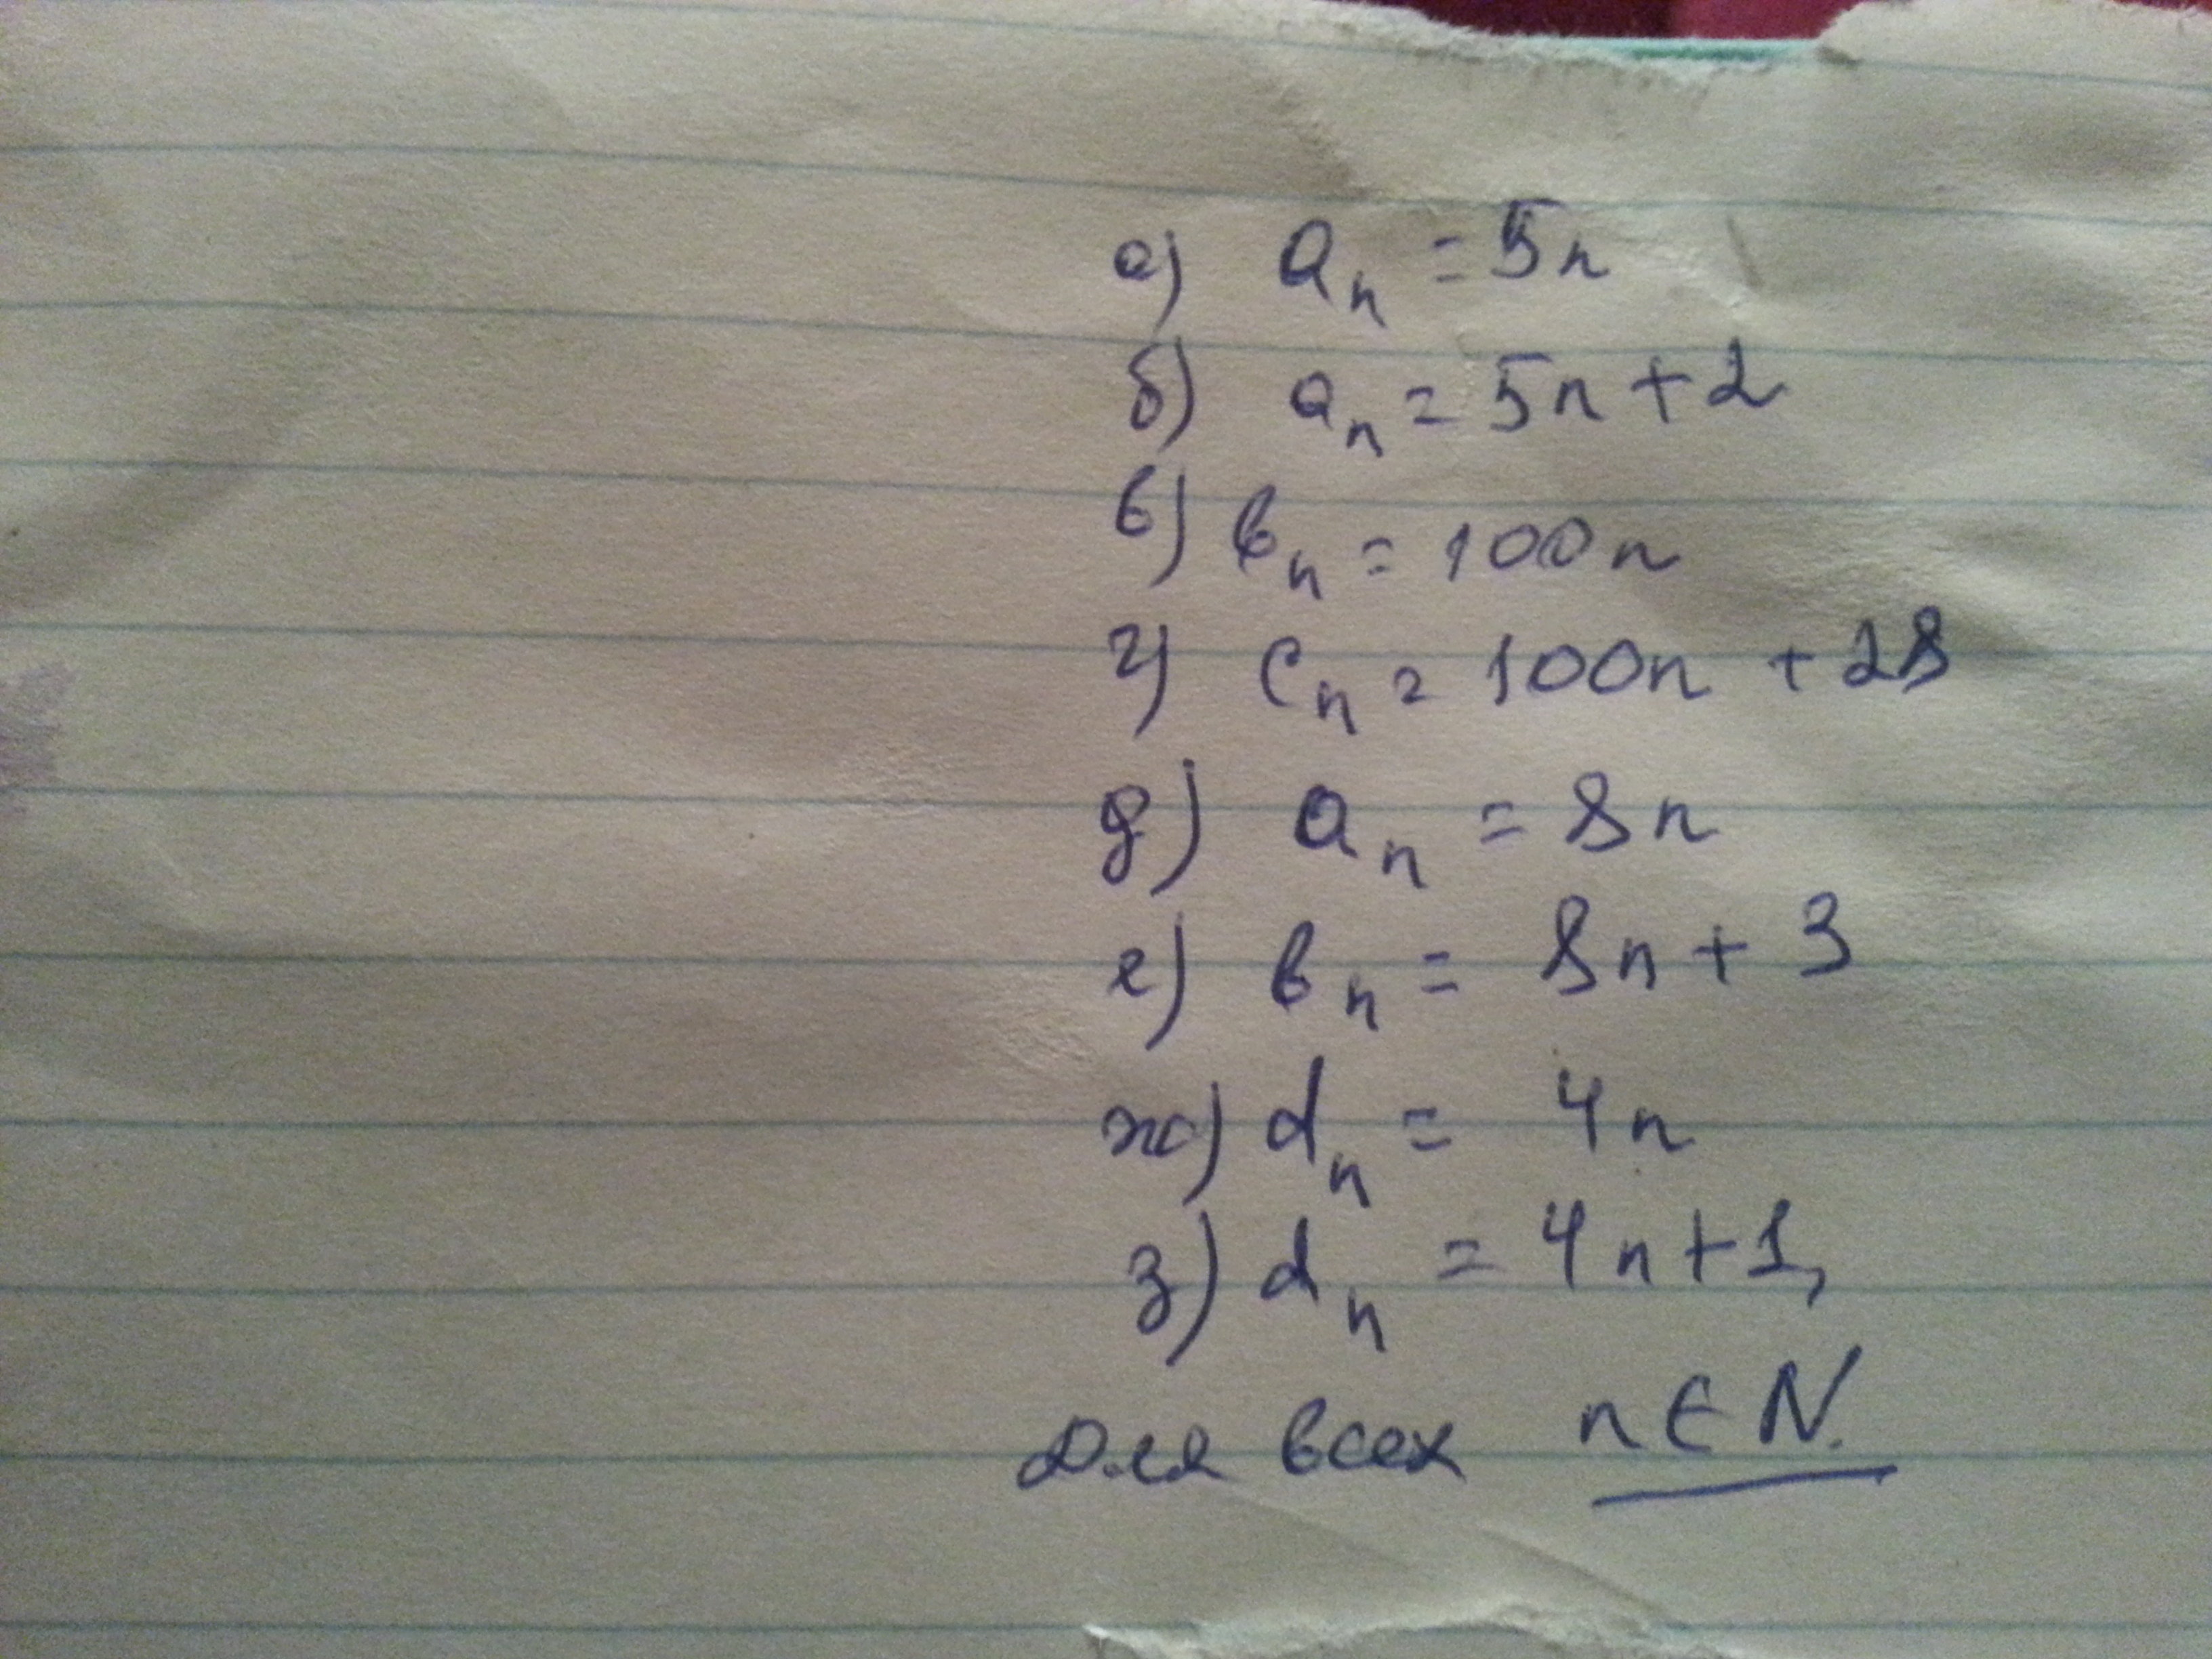 а) aₙ = 5n
б) aₙ = 5n + 2
в) вₙ = 100n
г) cₙ = 100n + 28
д) aₙ = 8n
е) вₙ = 8n + 3
ж) dₙ = 4n
з) dₙ = 4n + 1,
Для всех n ∈ N.